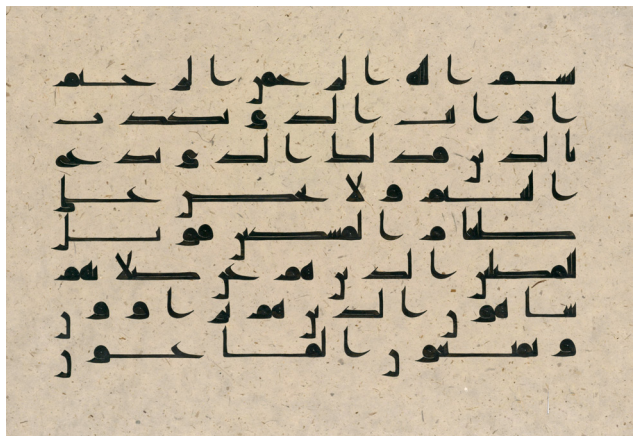 بسم الله الرحمن الرحيم
ارايت الذي يكذب
بالدين فذلك الذي يدع
اليتيم ولا يحض على
طعام المسكين فويل
للمصلين الذين هم عن صلاتهم
ساهون الذين هم يراون
ويمنعون الماعون